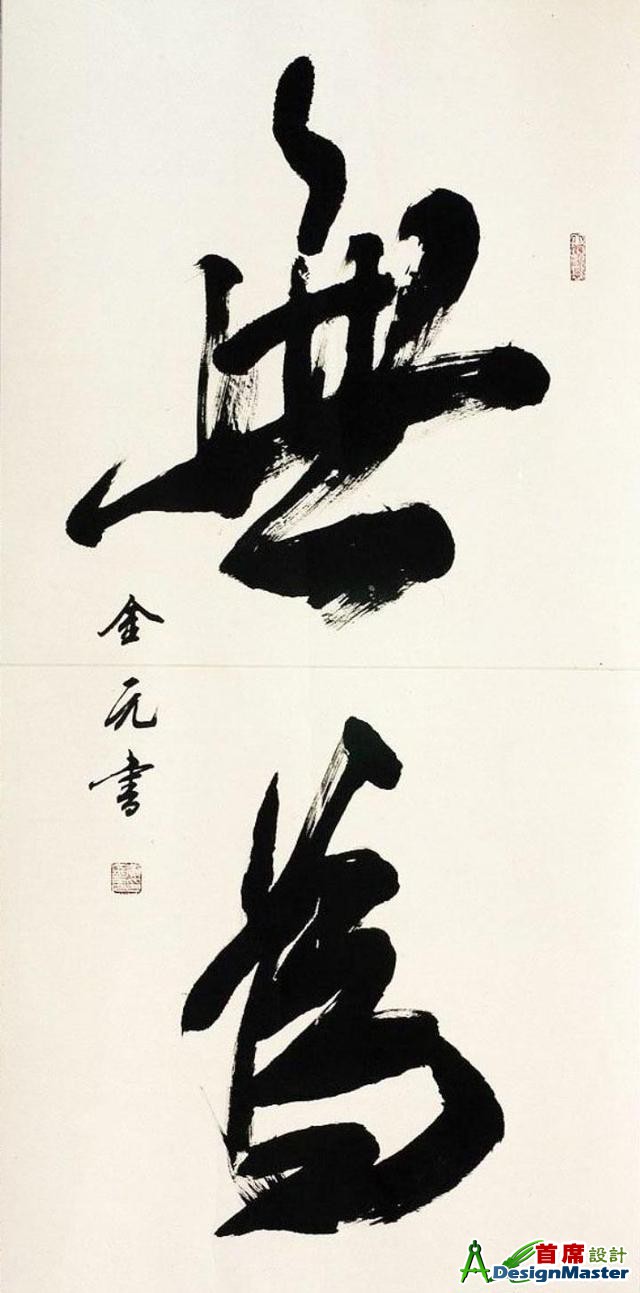 無為
金元书
首席設計
DesignMaster